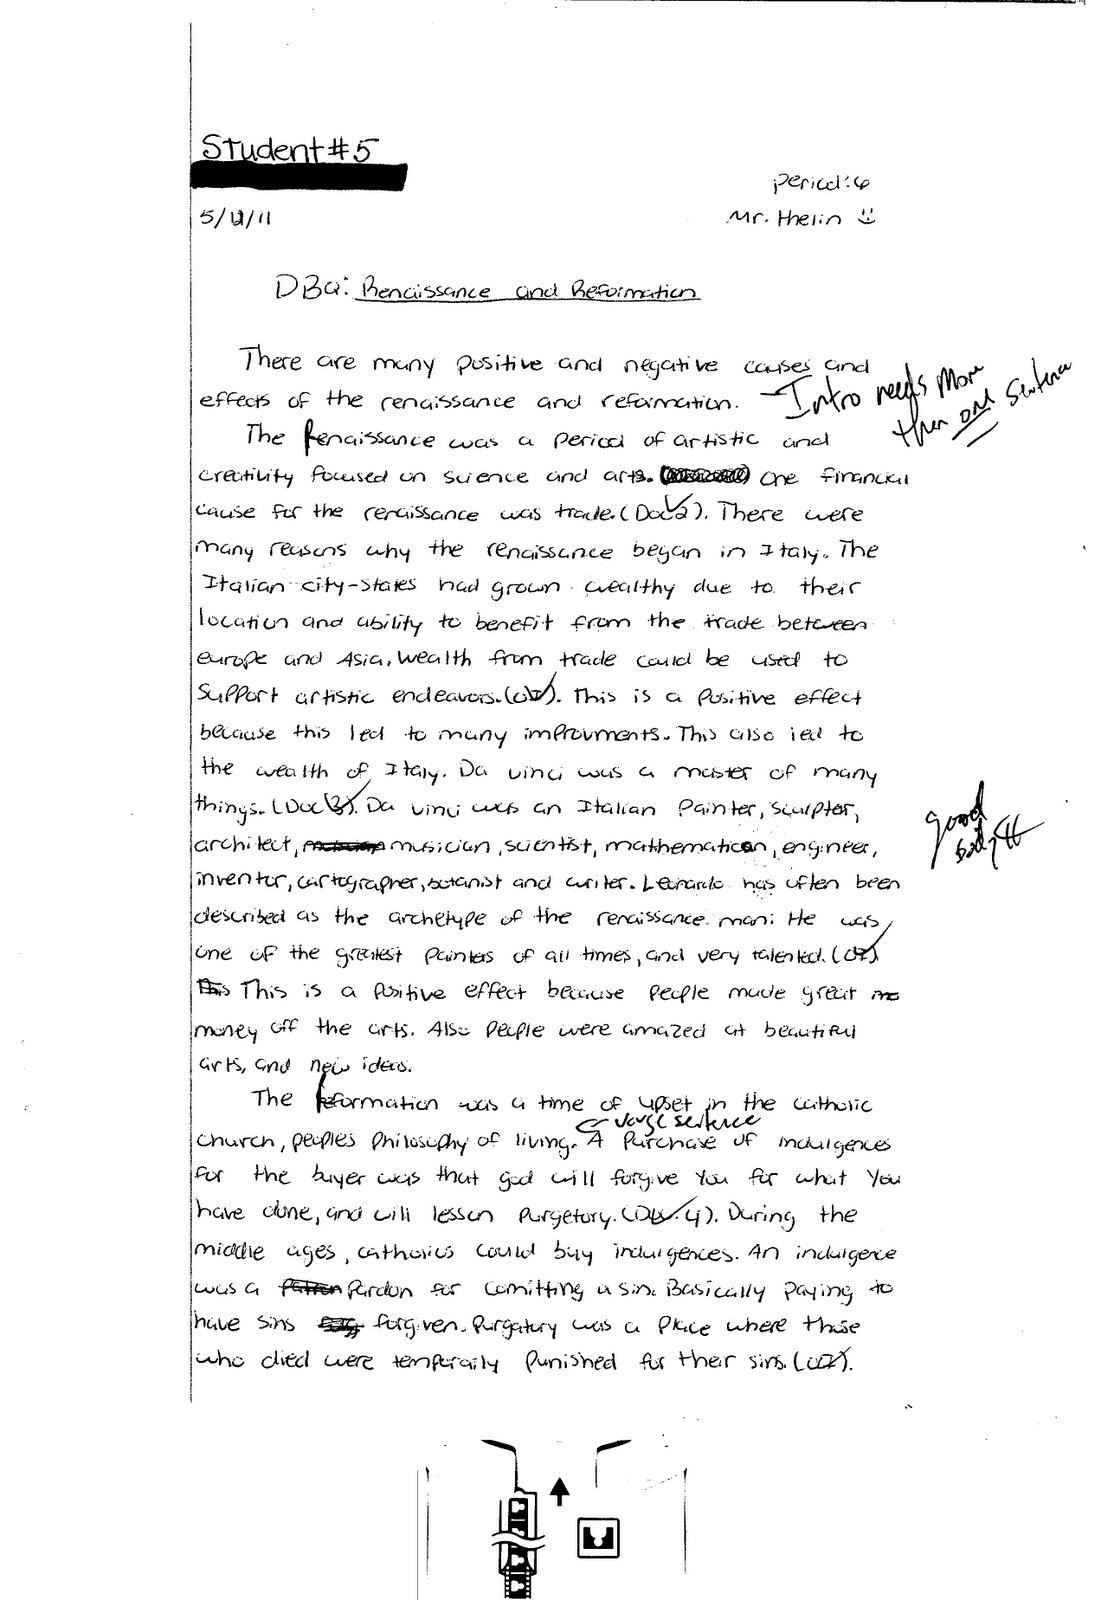 Student #5
Period: 6
5/12/11
Mr. Thelin
DBQ: Renaissance and Reformation
There are many positive and negative causes and
effects of the renaissance and reformation.
Intro needs more
then one sentence
The renaissance was a period of artistic and
creativity focused on science and arts. One financial
cause for the renaissance was trade. (Doc 2). There were
many reasons why the renaissance began in Italy. The
Italian city-states had grown wealthy due to their
location and ability to benefit from the trade between
europe and Asia. Wealth from trade could be used to
support artistic endeavors. (OI). This is a positive effect
because this led to many improvments. This also led to
the wealth of Italy. Da vinci was a master of many
things. (Doc 3). Da vinci was an Italian Painter, sculptor,
architect, musician, scientist, mathematicon, engineer,
inventor, cartographer, botanist and writer. Leonardo has often been
good
body ¶
described as the archetype of the renaissance man. He was
one of the greatest painters of all times, and very talented. (OI)
This is a positive effect because people made great
money off the arts. Also people were amazed at beautiful
arts, and new ideas.
The reformation was a time of upset in the catholic
vauge sentence
church, peoples philosophy of living. A purchase of indulgences
for the buyer was that god will forgive you for what you
have done, and will lessen purgetory. (Doc. 4). During the
middle ages, catholics could buy indulgences. An indulgence
was a pardon for comitting a sin. Basically paying to
have sins forgiven. Purgatory was a place where those
who died were temporaily punished for their sins. (OI).